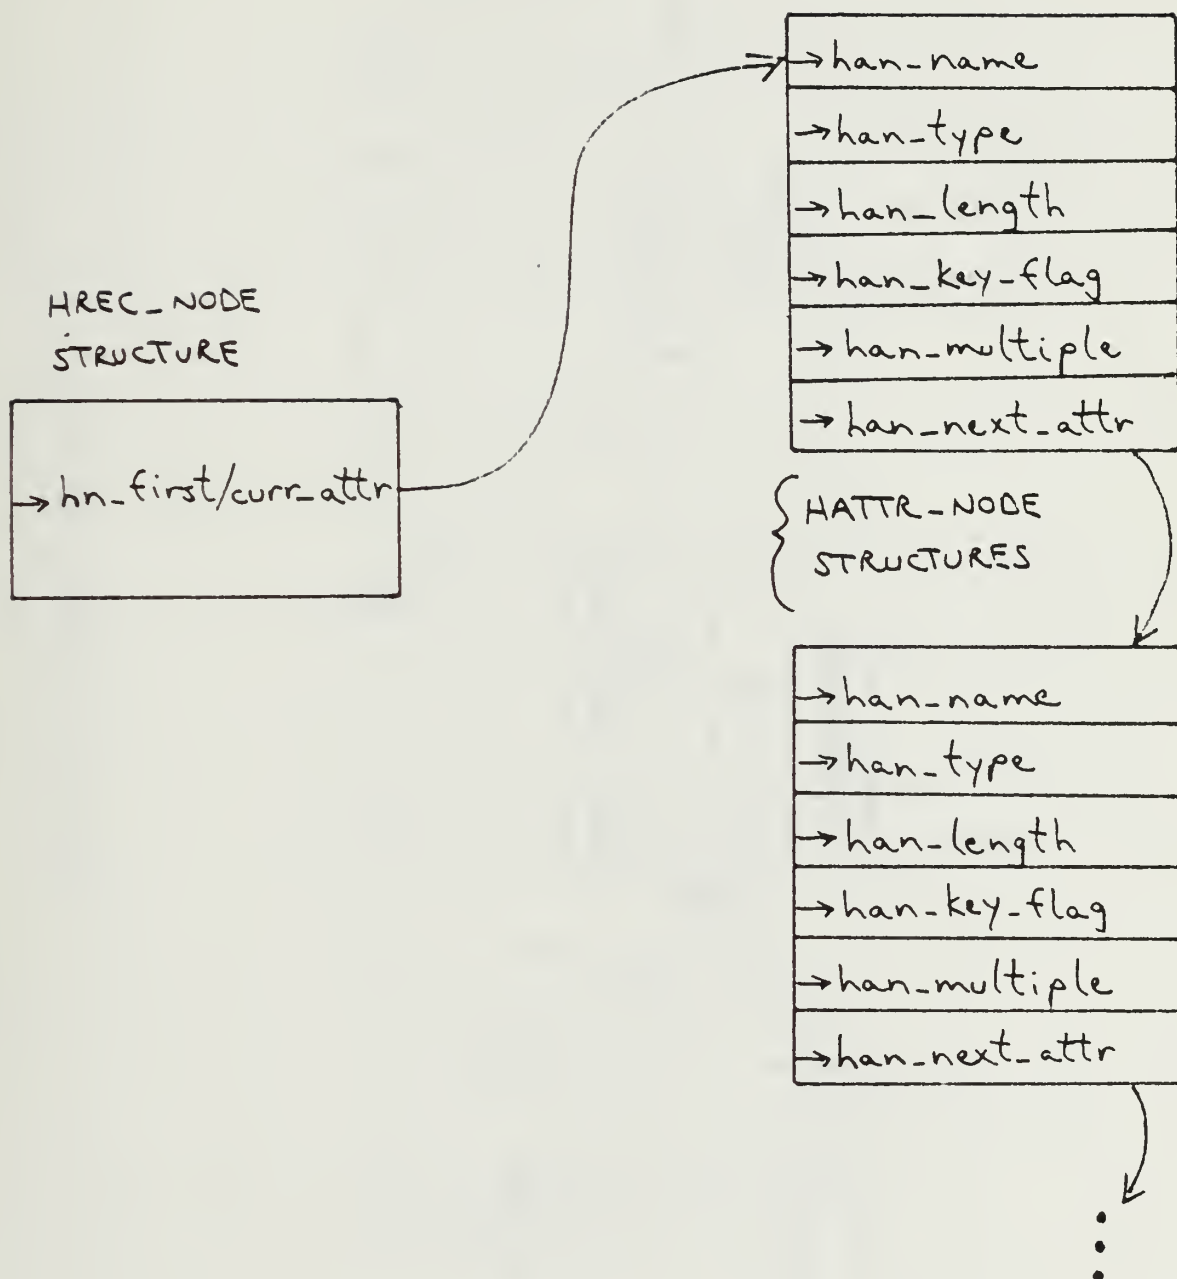 HREC_NODE
STRUCTURE
→ hn_first/curr_attr
→ han_name
→ han_type
→ han_length
→ han_key_flag
→ han_multiple
→ han_next_attr
HATTR_NODE
STRUCTURES
→ han_name
→ han_type
→ han_length
→ han_key_flag
→ han_multiple
→ han_next_attr